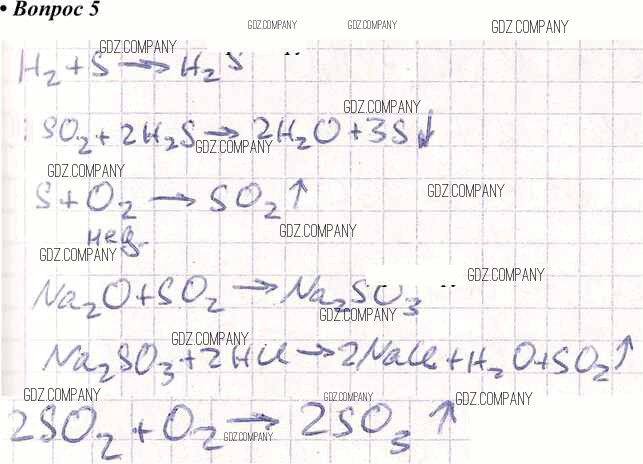 • Вопрос 5
GDZ.COMPANY GDZ.COMPANY GDZ.COMPANY GDZ.COMPANY
H₂ + S → H₂S
GDZ.COMPANY
SO₂ + 2H₂S → 2H₂O + 3S↓
GDZ.COMPANY
GDZ.COMPANY GDZ.COMPANY
S + O₂ → SO₂↑
нед. GDZ.COMPANY
GDZ.COMPANY GDZ.COMPANY
Na₂O + SO₂ → Na₂SO₃
GDZ.COMPANY
GDZ.COMPANY
Na₂SO₃ + 2HCl → 2NaCl + H₂O + SO₂↑
GDZ.COMPANY GDZ.COMPANY GDZ.COMPANY
2SO₂ + O₂ → 2SO₃↑
GDZ.COMPANY